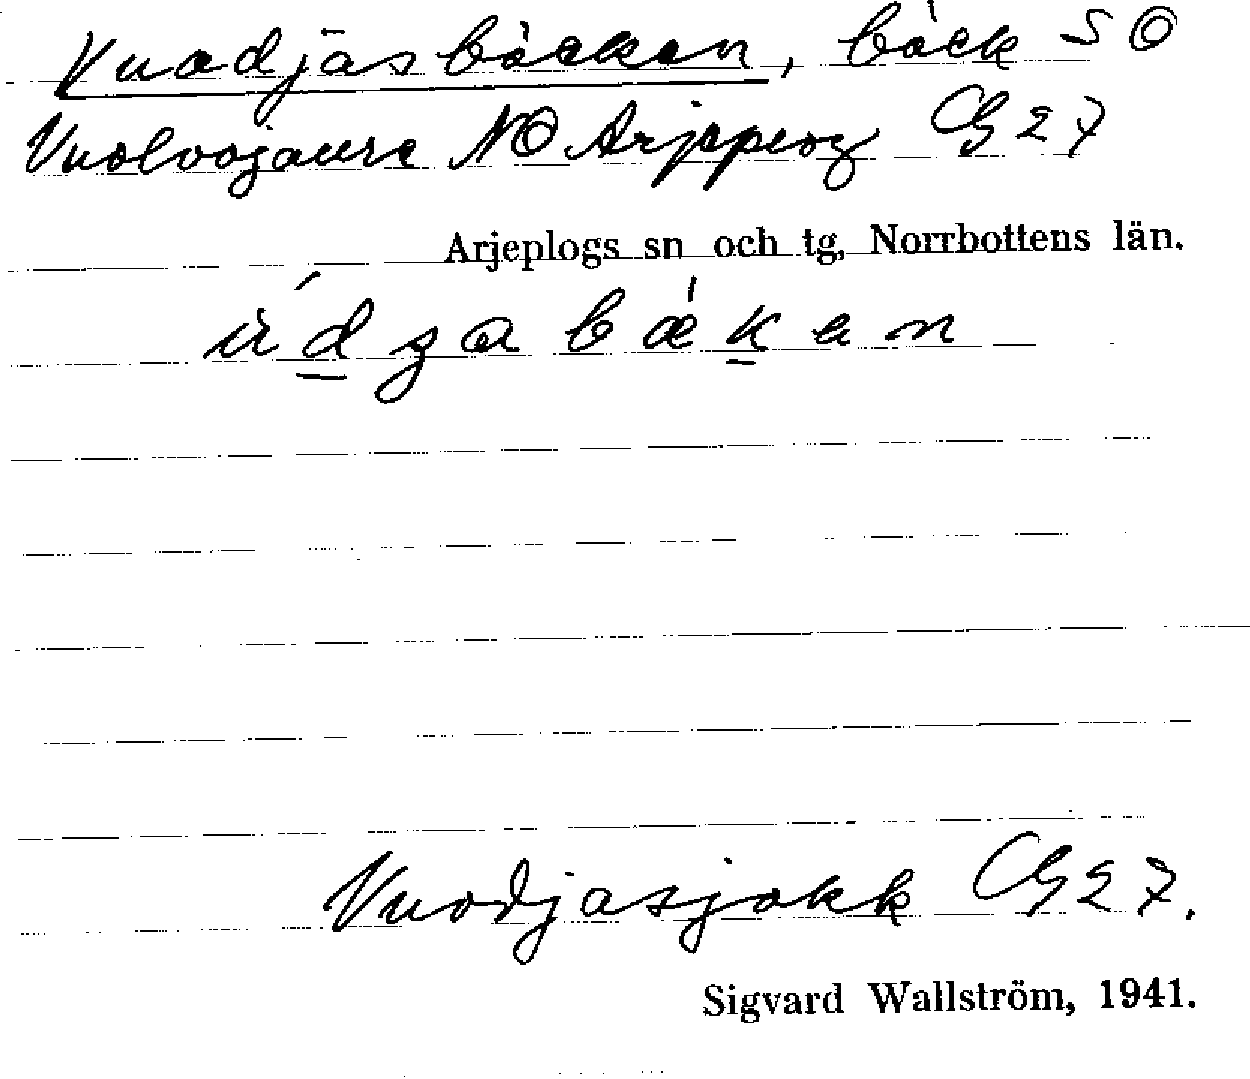 Vuodjasbäcken, bäck SO
Vuolvojaure NO Arjeplog G 27
Arjeplogs sn och tg, Norrbottens län.
Vuodjasjokk G 27.
Sigvard Wallström, 1941.